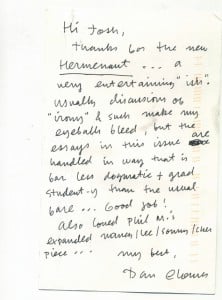 Hi Josh,
thanks for the new
Hermenaut ... a
very entertaining "ish".
usually discussions of
"irony" & such make my
eyeballs bleed, but the
essays in this issue are
handled in way that is
far less dogmatic & grad
student-y than the usual
fare ... Good job!
Also loved Phil M.'s
expanded names/Lee/Sonny/Cher
piece ... my best,
Dan Clowes